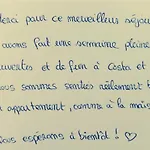 Merci pour ce merveilleux séjou
avons fait une semaine pleine
uvertes et de fun à Costa et
ous sommes senties réellement b
n appartement, comme à la mais
ous espérons à bientôt ! ♡